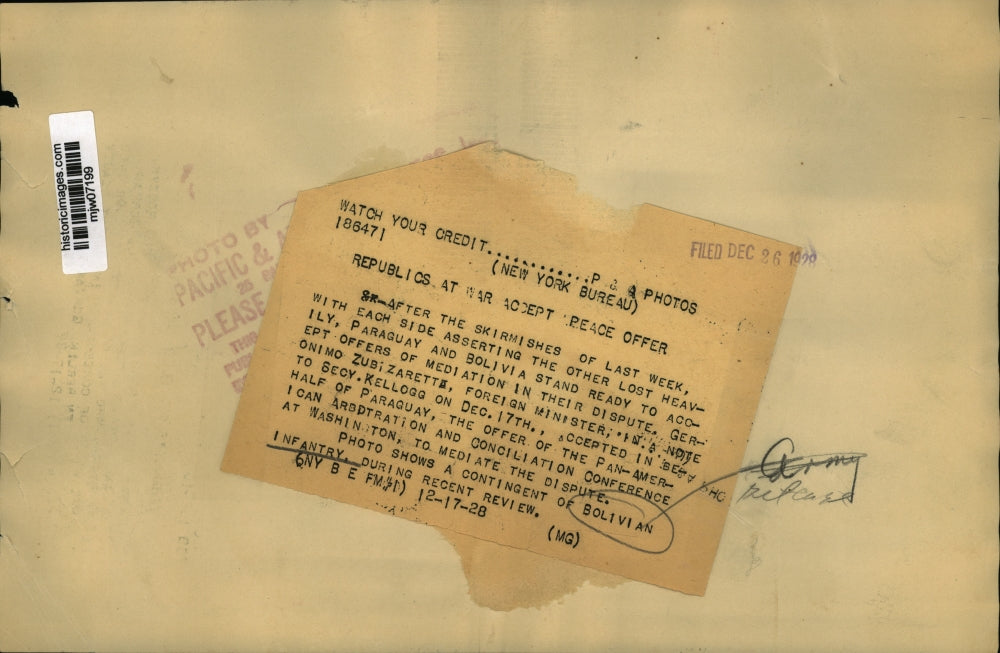 historicimages.com
mjw07199
PHOTO BY
PACIFIC &
PLEASE
WATCH YOUR CREDIT............P & A PHOTOS
186471 (NEW YORK BUREAU)
FILED DEC 26 1928
REPUBLICS AT WAR ACCEPT PEACE OFFER
AFTER THE SKIRMISHES OF LAST WEEK,
WITH EACH SIDE ASSERTING THE OTHER LOST HEAV-
ILY, PARAGUAY AND BOLIVIA STAND READY TO ACC-
EPT OFFERS OF MEDIATION IN THEIR DISPUTE. GER-
ONIMO ZUBIZARETTE, FOREIGN MINISTER, IN A NOTE
TO SECY. KELLOGG ON DEC. 17TH., ACCEPTED IN BE-
HALF OF PARAGUAY, THE OFFER OF THE PAN-AMER-
ICAN ARBDTRATION AND CONCILIATION CONFERENCE
AT WASHINGTON, TO MEDIATE THE DISPUTE.
PHOTO SHOWS A CONTINGENT OF BOLIVIAN
INFANTRY, DURING RECENT REVIEW.
(NY B E FM.) 12-17-28 (MG)
Army